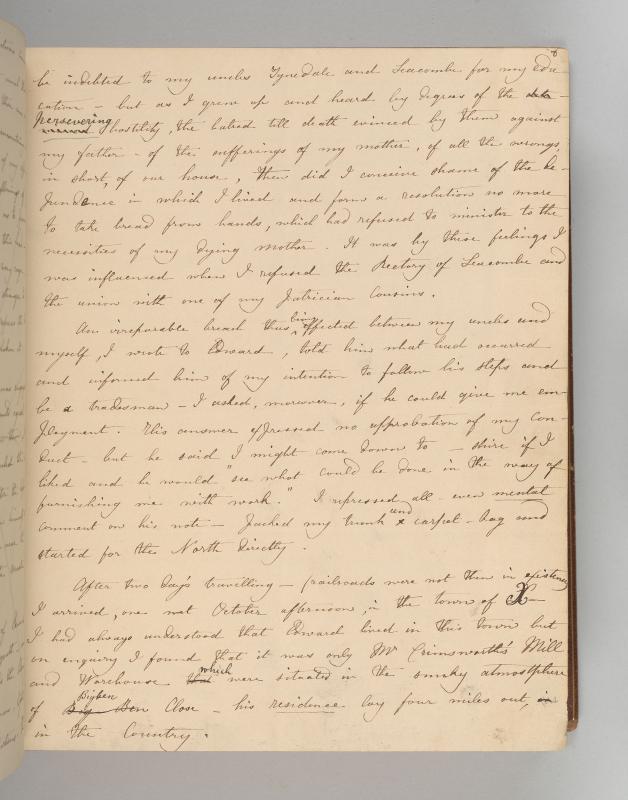 6
be indebted to my uncles Tynedale and Seacombe for my edu-
cation - but as I grew up and heard by degrees of the
persevering hostility, the hatred till death evinced by them against
my father - of the sufferings of my mother, of all the wrongs,
in short, of our house, then did I conceive shame of the de-
pendence in which I lived and form a resolution no more
to take bread from hands, which had refused to minister to the
necessities of my dying mother. It was by these feelings I
was influenced when I refused the Rectory of Seacombe and
the union with one of my patrician cousins.
An irreparable breach thus being effected between my uncles and
myself, I wrote to Edward, told him what had occurred
and informed him of my intention to follow his steps and
be a tradesman - I asked, moreover, if he could give me em-
ployment. His answer expressed no approbation of my con-
duct - but he said I might come down to - shire if I
liked and he would "see what could be done in the way of
furnishing me with work." I repressed all - even mental
comment on his note - packed my trunk and carpet-bag and
started for the North directly.
After two day's travelling - (railroads were not then in existence)
I arrived, one wet October afternoon, in the town of X-
I had always understood that Edward lived in this town but
on enquiry I found that it was only Mr Crimsworth's Mill
and Warehouse which were situated in the smoky atmosphere
of Bigben Close - his residence lay four miles out, in
in the Country.